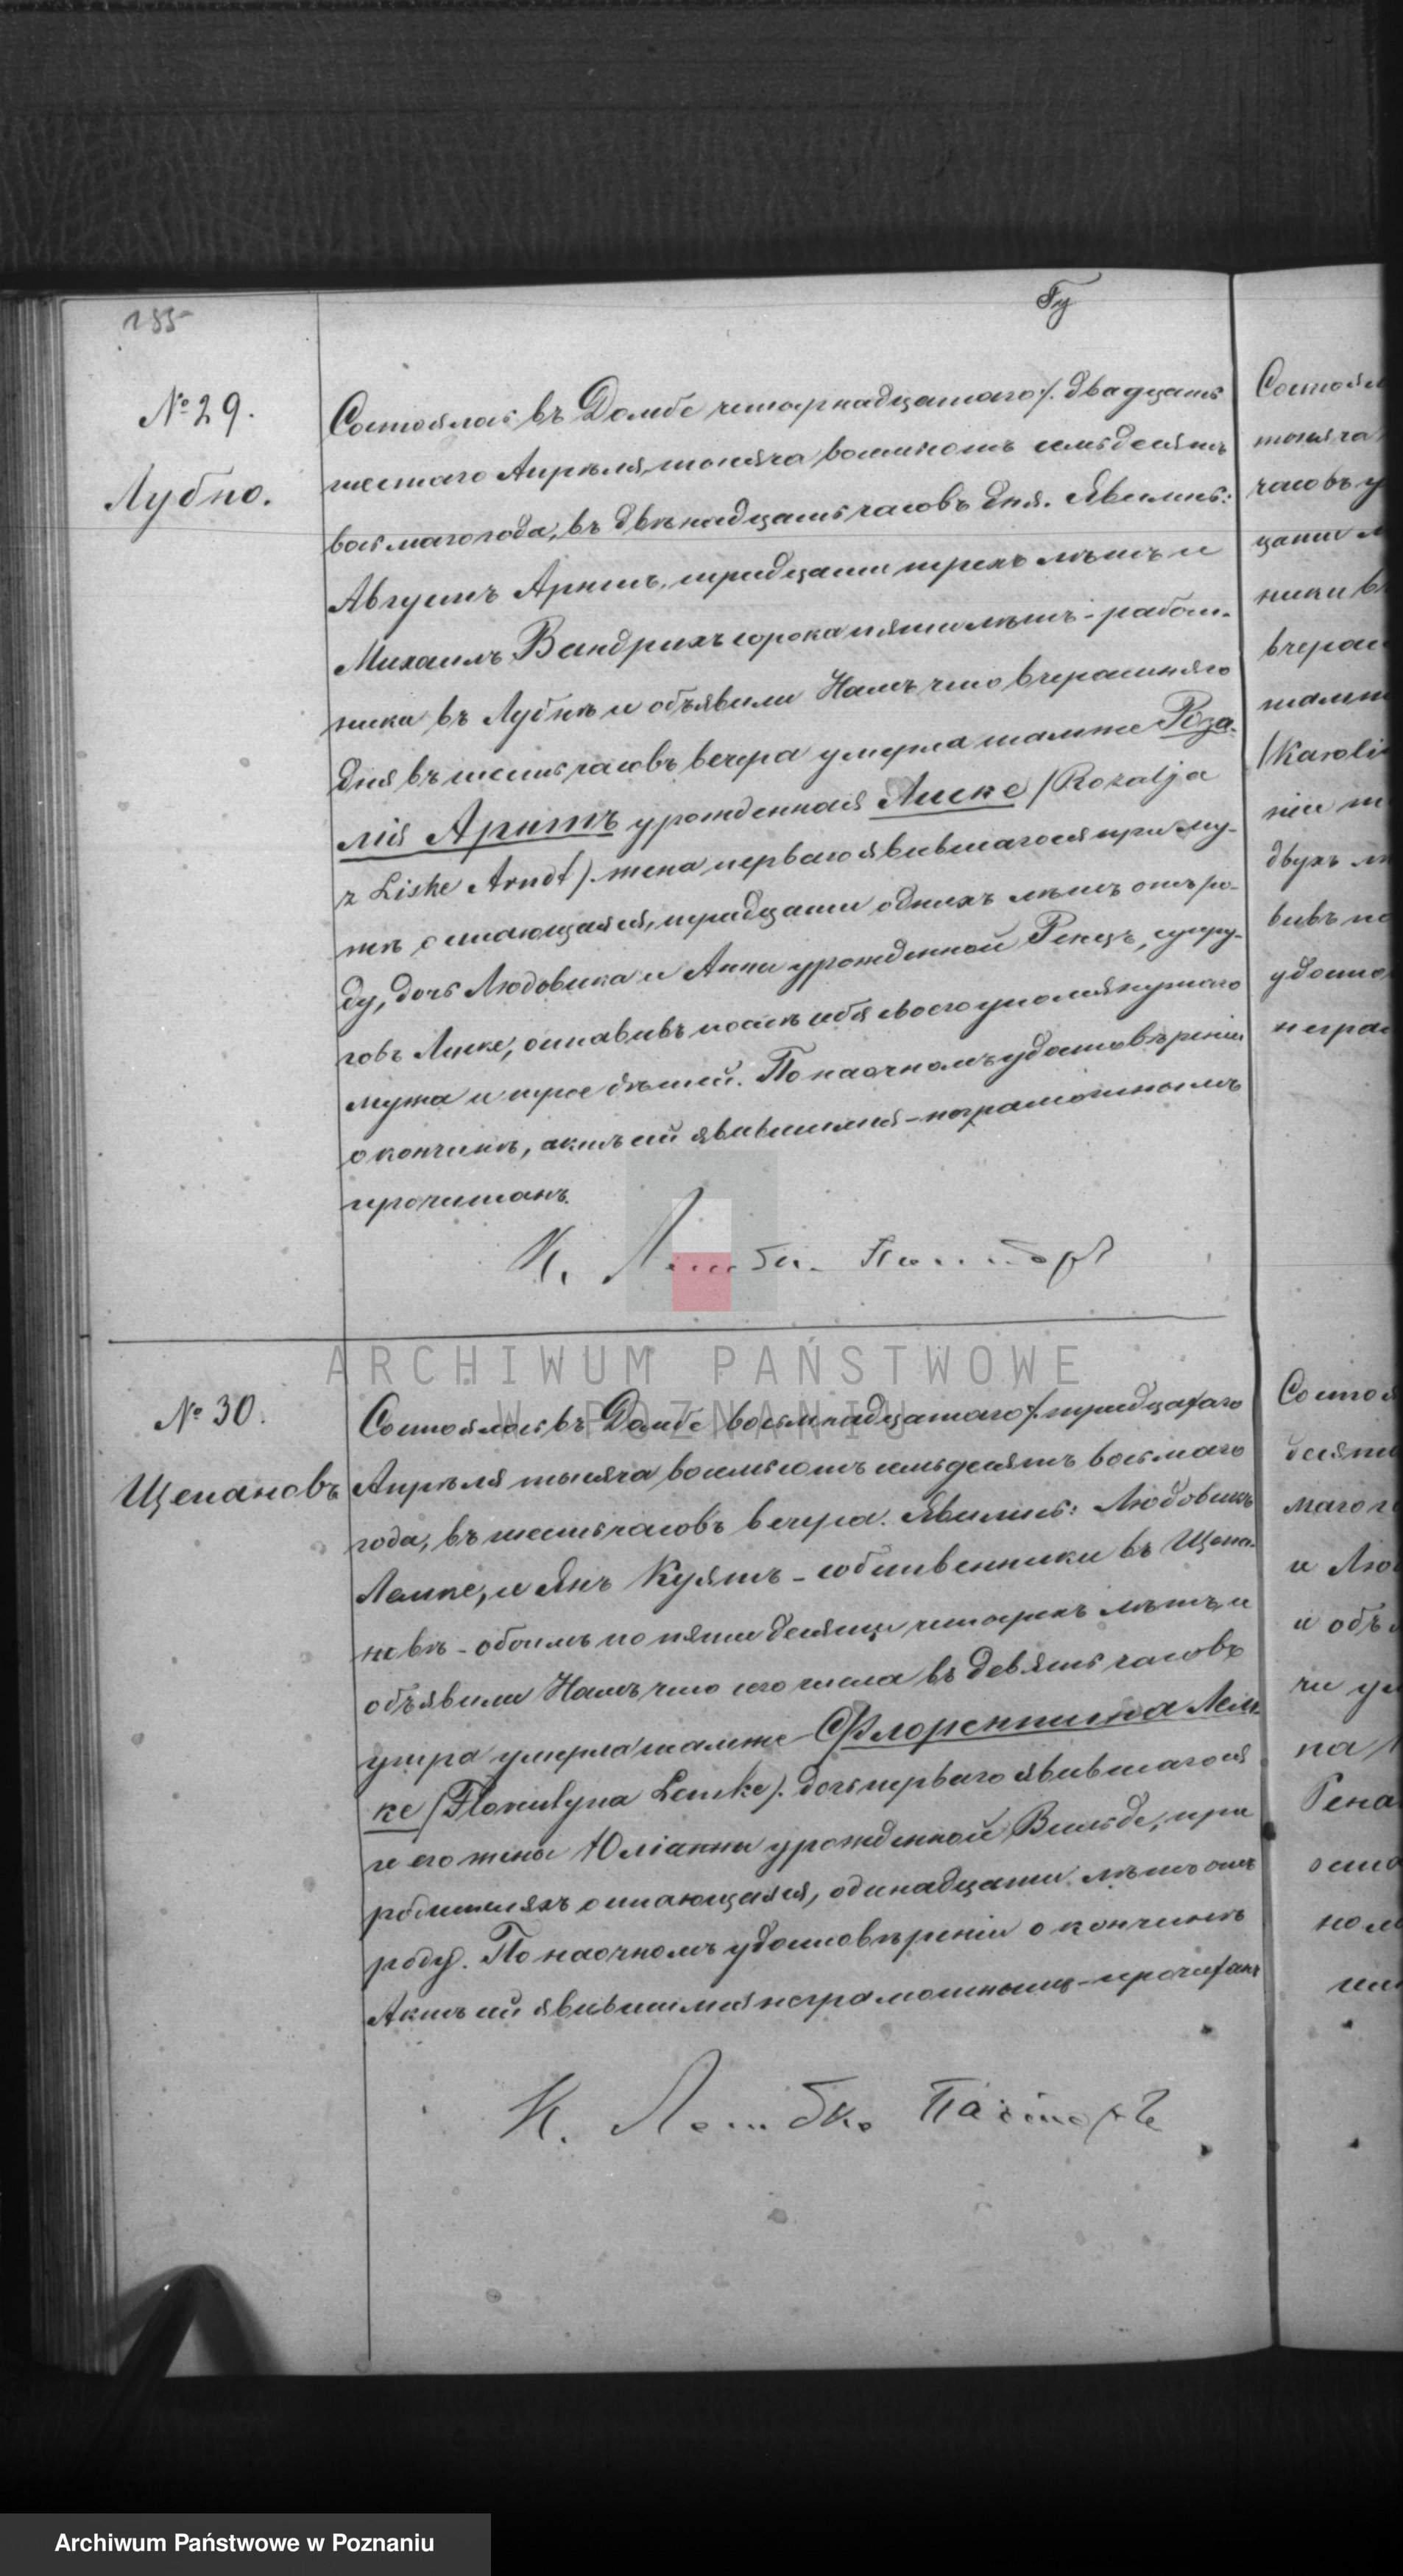 155
Гу
№ 29.
Лубно.
Состоялось въ Домбе четырнадцатаго /. двадцать
шестаго Апрѣля, тысяча восемьсотъ семьдесятъ
восьмаго года, въ двѣнадцать часовъ дня. Явились:
Августъ Арнтъ, тридцати трехъ лѣтъ и
Михаилъ Вандрихъ сорока пяти лѣтъ - работ-
ника въ Лубнѣ и объявили Намъ что вчерашняго
дня въ шесть часовъ вечера умерла тамже Роза-
лія Арнтъ урожденная Лиске /Rozalja
z Liske Arndt/. жена перваго явившагося при му-
жѣ остающаяся, тридцати одного лѣтъ отъ ро-
ду, дочь Людовика и Анны урожденной Ренцъ, супру-
говъ Лиске, оставивъ послѣ себя своего упомянутаго
мужа и трое дѣтей. По наочномъ удостовѣреніи
о кончинѣ, актъ сей явившимся - неграмотнымъ
прочитанъ.
К. Пасторъ
№ 30.
Щепановъ
Состоялось въ Домбе восемнадцатаго /. тридцатаго
Апрѣля тысяча восемьсотъ семьдесятъ восьмаго
года, въ шесть часовъ вечера. Явились: Людовикъ
Лемке, и Янъ Куятъ - собственники въ Щепа-
новѣ - обоимъ по пяти десяти четырехъ лѣтъ, и
объявили Намъ что сего числа въ девять часовъ
утра умерла тамже Флорентина Лем-
ке /Florentyna Lemke/. дочь перваго явившагося
и его жены Юліанны урожденной Вильде, при
родителяхъ остающаяся, одинадцати лѣтъ отъ
роду. По наочномъ удостовѣреніи о кончинѣ
Актъ сей явившимся неграмотнымъ - прочитанъ
К. Пасторъ
ARCHIWUM PAŃSTWOWE
W POZNANIU
Archiwum Państwowe w Poznaniu